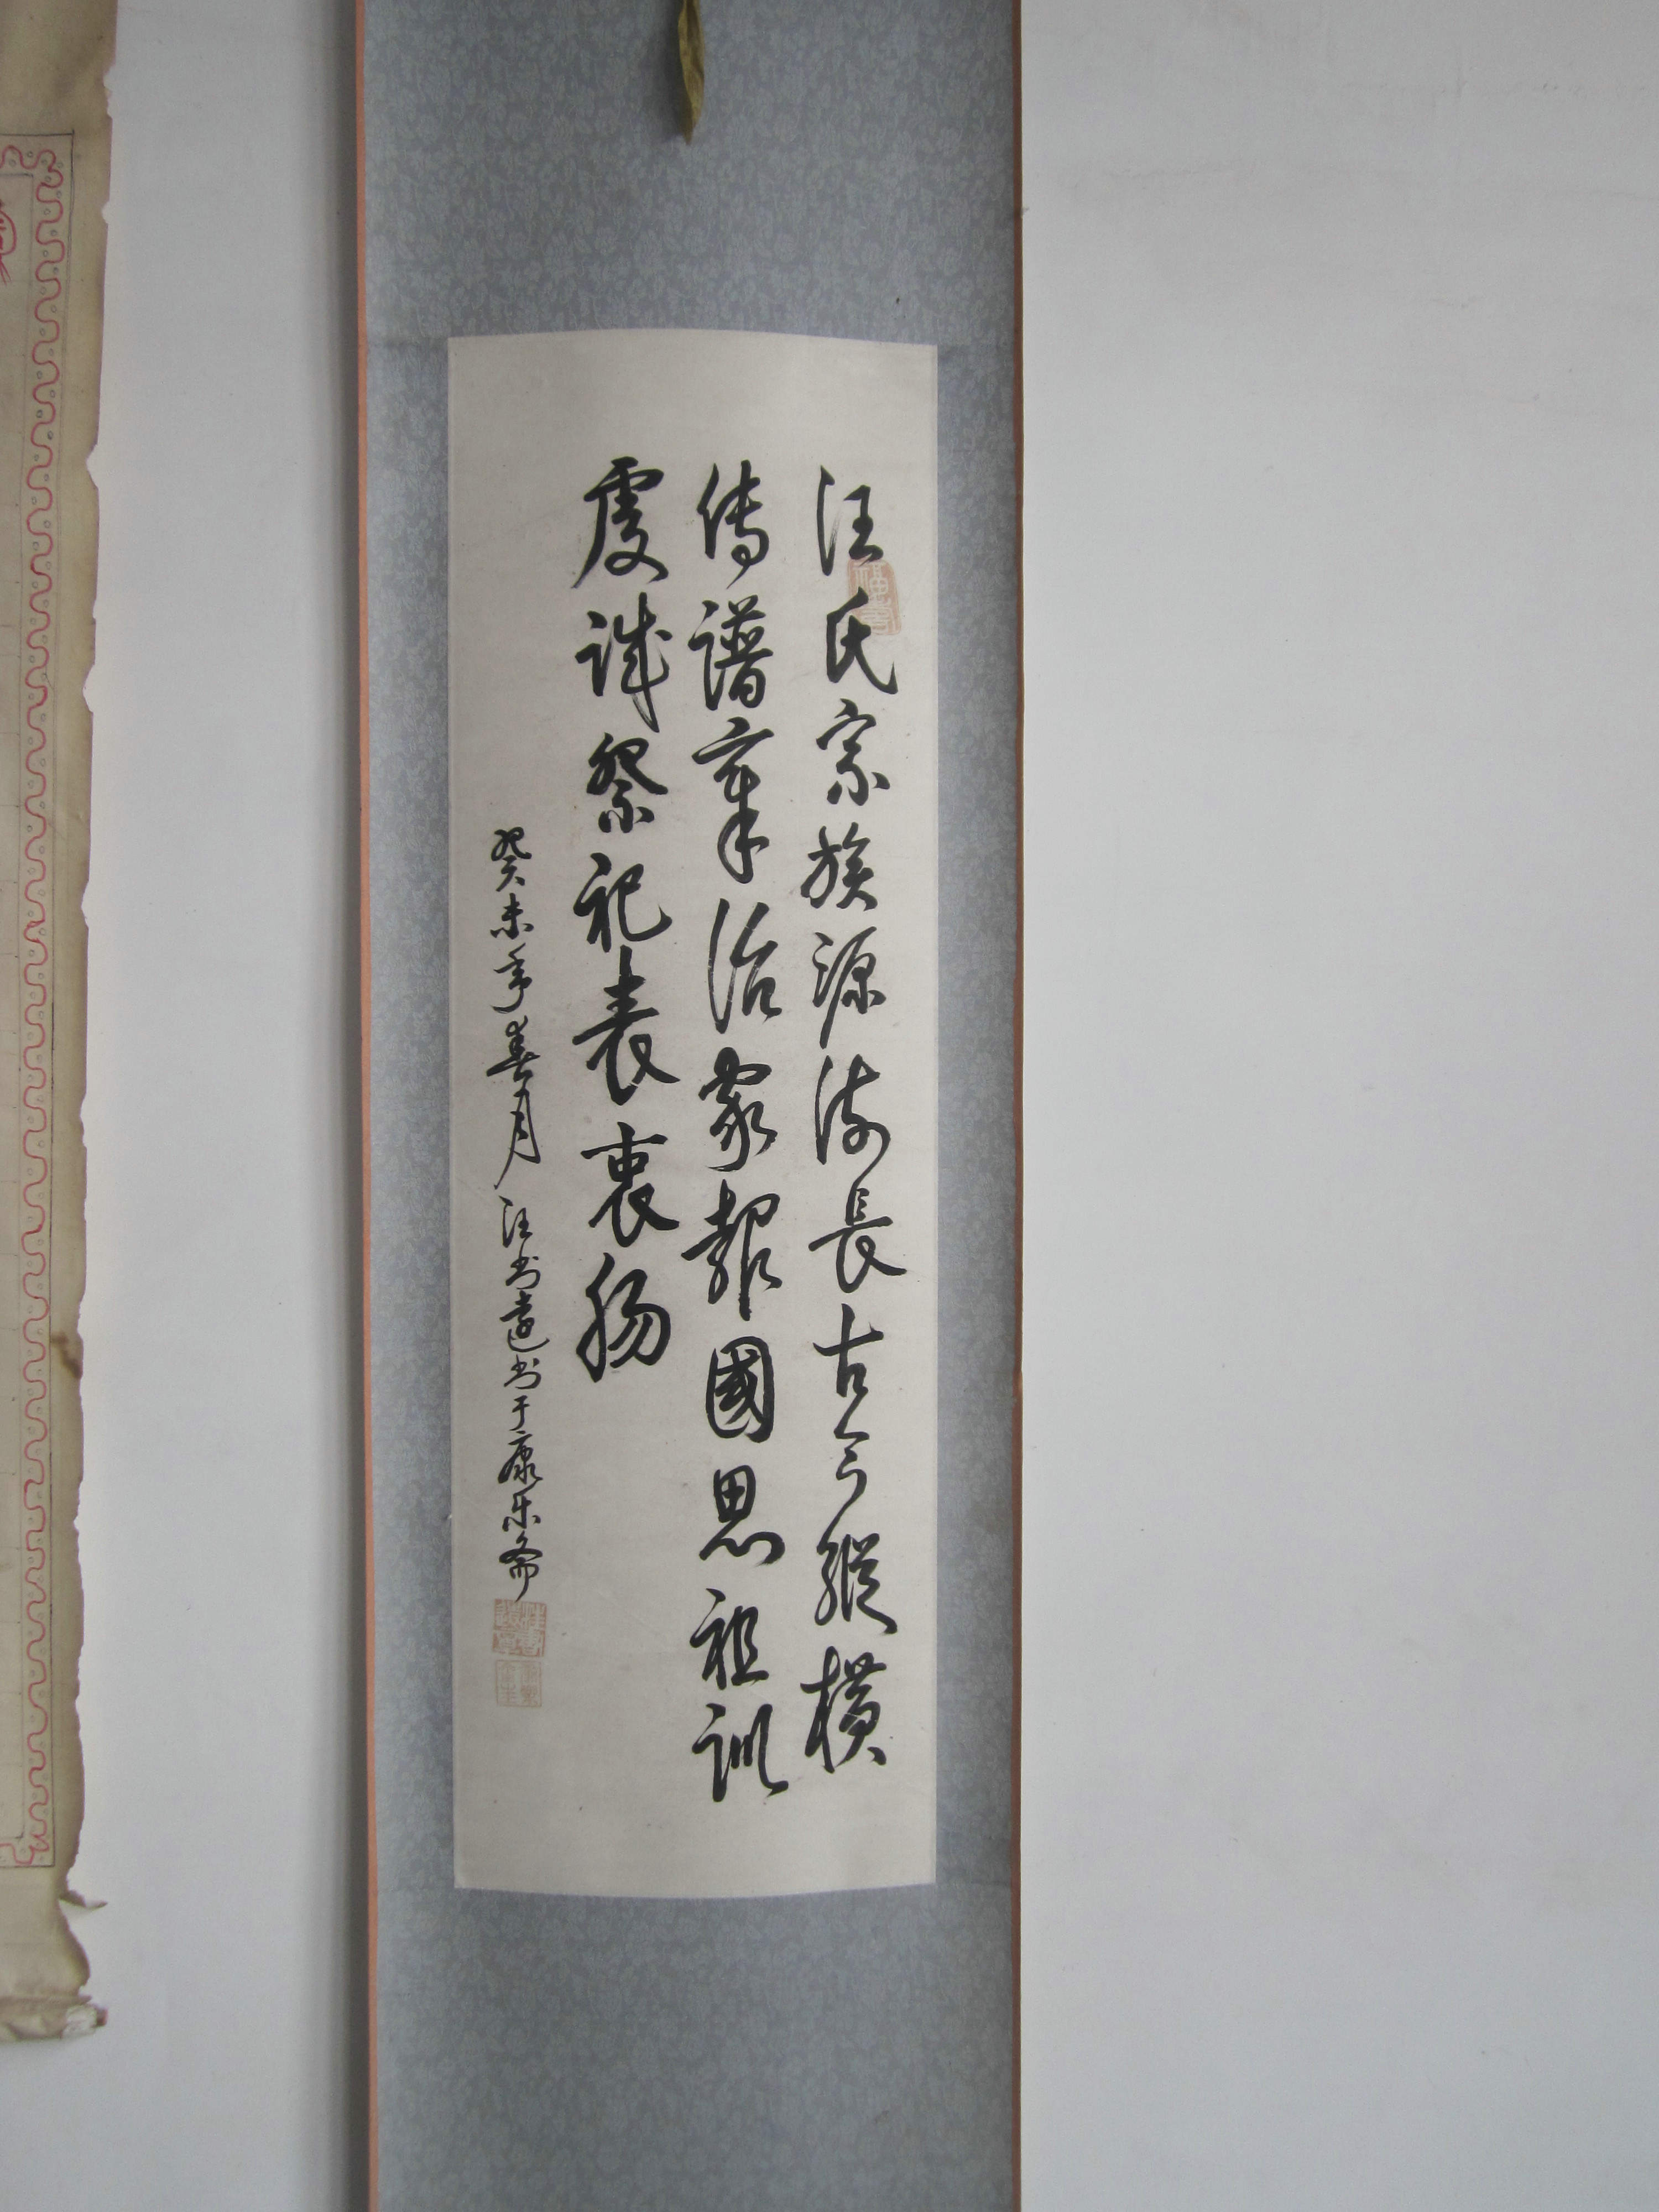 汪氏宗族源流長古今縱橫
传譜章治家報國思祖訓
虔诚祭祀表衷肠
癸未年春月汪书遠书于康乐斋
福寿